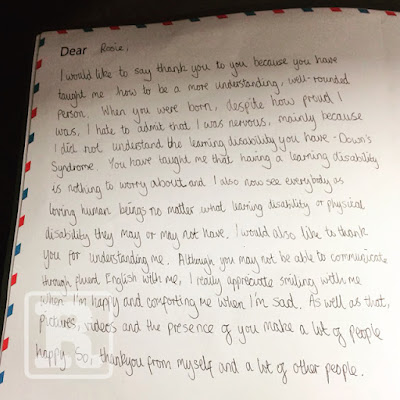 Dear Rosie,
I would like to say thank you to you because you have
taught me how to be a more understanding, well-rounded
person. When you were born, despite how proud I
was, I hate to admit that I was nervous, mainly because
I did not understand the learning disability you have - Down's
Syndrome. You have taught me that having a learning disability
is nothing to worry about and I also now see everybody as
loving human beings no matter what learning disability or physical
disability they may or may not have. I would also like to thank
you for understanding me. Although you may not be able to communicate
through fluent English with me, I really appreciate smiling with me
when I'm happy and comforting me when I'm sad. As well as that,
pictures, videos and the presence of you make a lot of people
happy. So, thankyou from myself and a lot of other people.
R